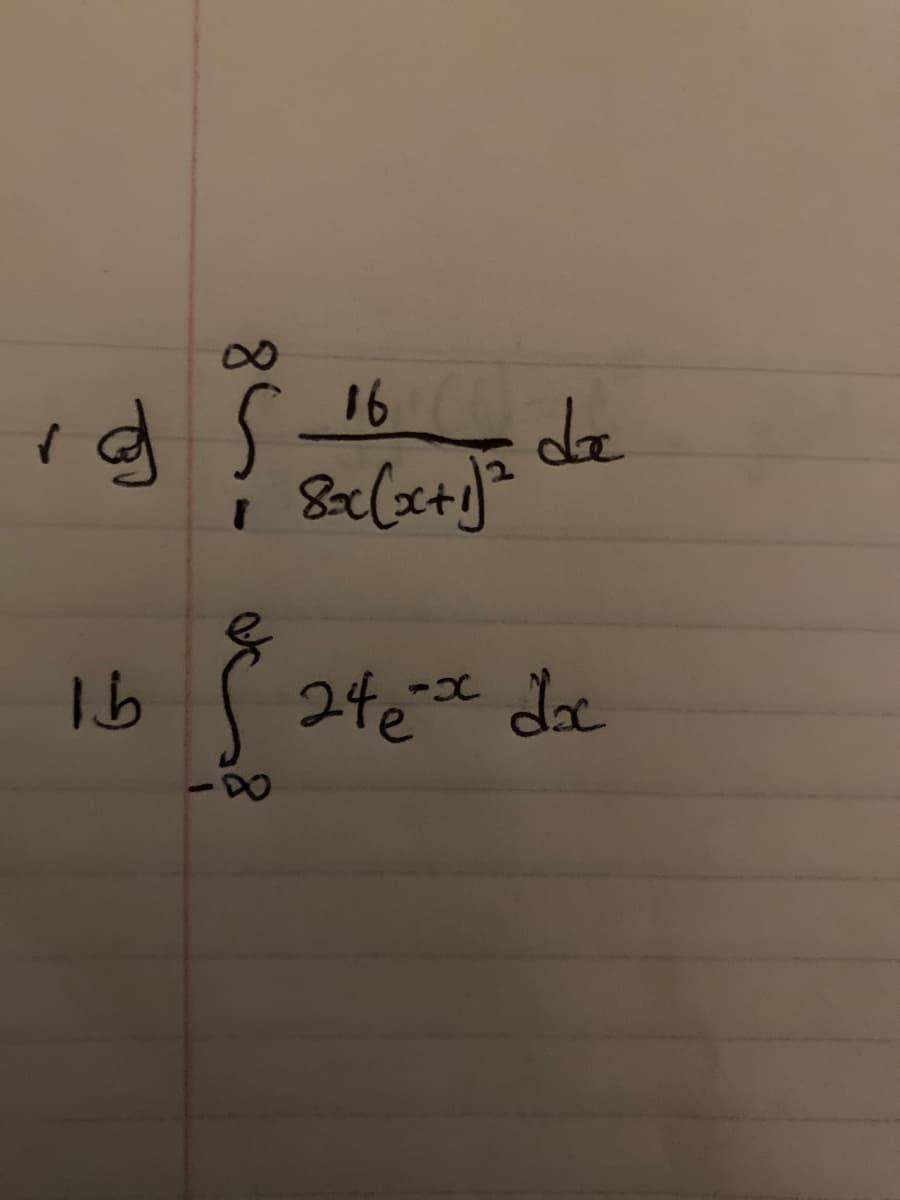 1 a) ∫₁^∞ 16/(8x(x+1)²) dx
1b ∫_{-∞}^e 24e^{-x} dx